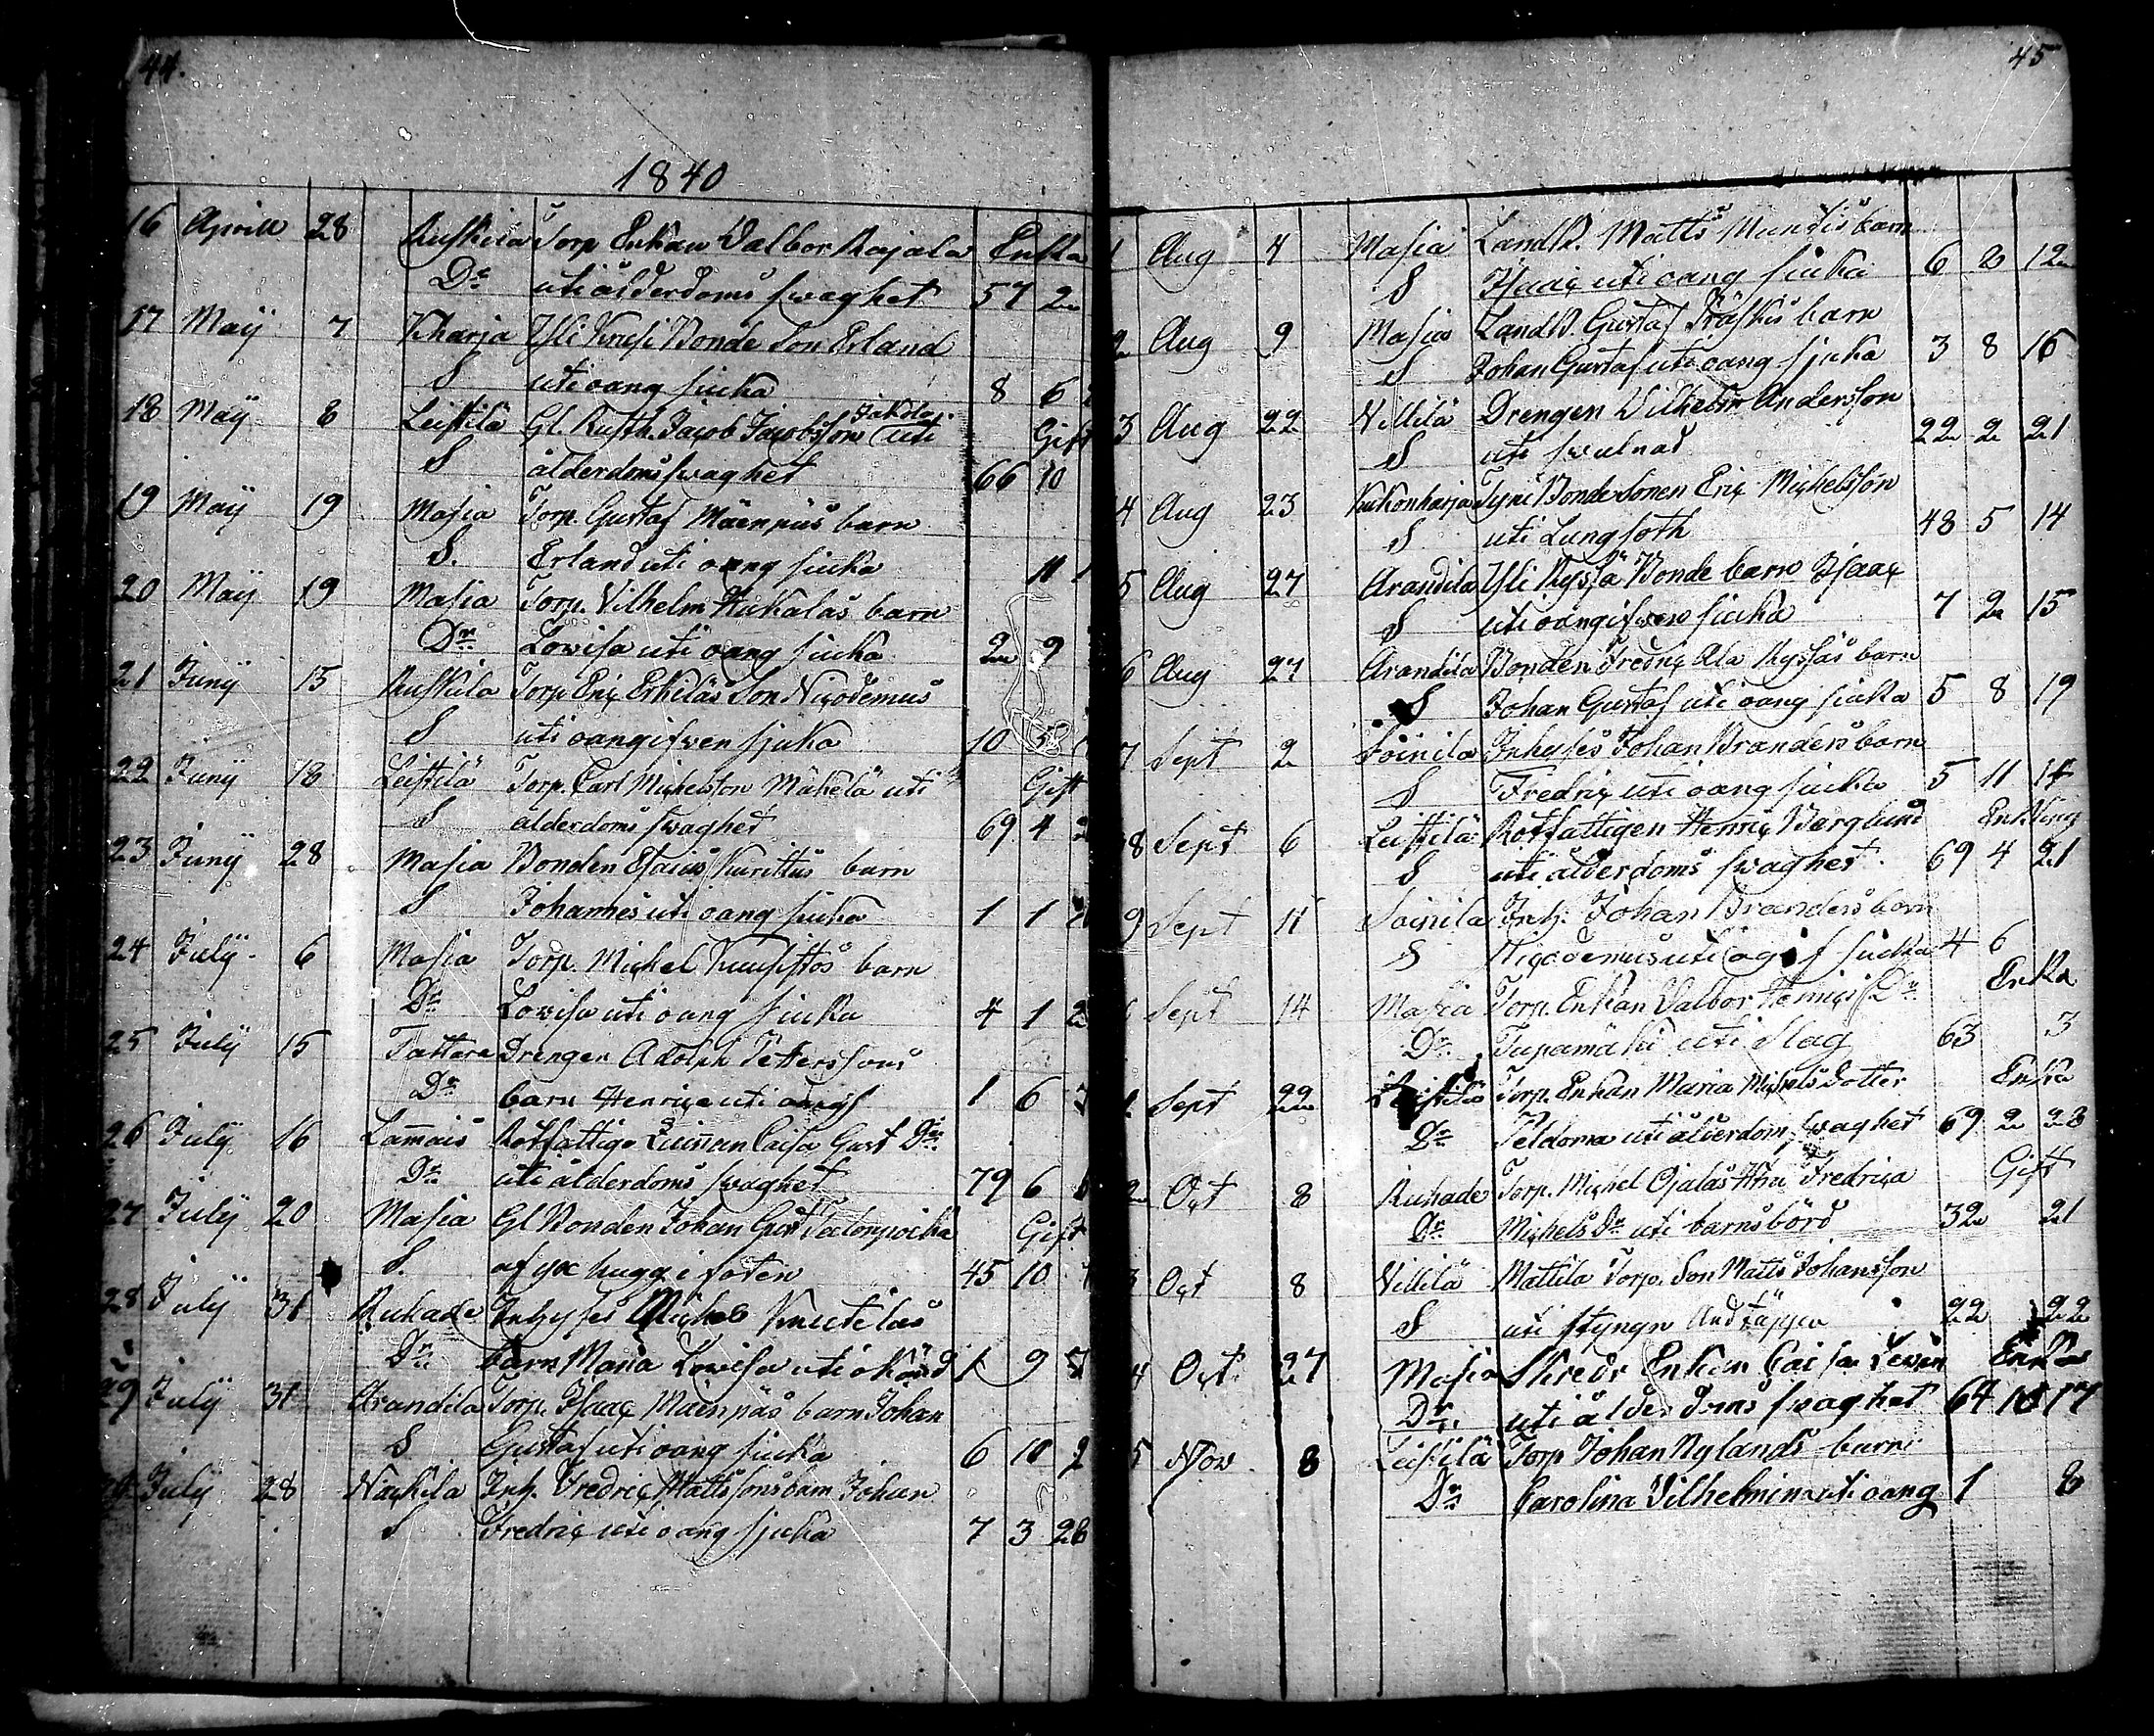 44.
1840
16 Aprill 28 Ruskila Torp Enkan Valbor Rajala Enka
Dr uti ålderdoms swaghet 57 2
17 Maij 7 Kharja Yli Krusi Bonde Son Erland
S uti oang siuka 8 6
18 Maij 8 Leistilä Gl. Rusth. Jacob Jacobsson Jakola uti Gift
S ålderdoms swaghet 66 10
19 Maij 19 Masia Torp. Gustaf Mäenpäs barn
S. Erland uti oang siuka 11
20 Maij 19 Masia Torp. Vilhelm Hukalas barn
Dr Lowisa uti oang siuka 2 9
21 Junij 15 Ruskila Torp Eric Erkiläs Son Nicodemus
S uti oangifwen sjuka 10
22 Junij 18 Leistilä Torp. Carl Michelsson Mäkelä uti Gift
S ålderdoms swaghet 69 4 2
23 Junij 28 Masia Bonden Esaias Kurittus barn
S Johannes uti oang siuka 1 1
24 Julij 6 Masia Torp. Michel Kuusistos barn
Dr Lowisa uti oang siuka 4 1 2
25 Julij 15 Tattara Drengen Adolph Pettersons
Dr barn Henrica uti oangf 1 6
26 Julij 16 Lammais Rotfattige Caisa Gust Dr
Dr uti ålderdoms swaghet 79 6
27 Julij 20 Masia Gl Bonden Johan Gust Talonpoika Gift
S. af yx hugg i foten 45 10
28 Julij 31 Ruhade Inhyses Michel Knutilas
Dr barn Maria Lowisa uti okänd 1 9
29 Julij 31 Arandila Torp. Isaac Mäenpäs barn Johan
S Gustaf uti oang siuka 6 10 2
Julij 28 Näckilä Inh. Fredric Mattssons barn Johan
S Fredric uti oang sjuka 7 3 26
45
1 Aug 4 Masia Landb. Matts Muntis barn
S Isaac uti oang siuka 6 2 12
2 Aug 9 Masia Landb. Gustaf Präskis barn
S Johan Gustaf uti oang sjuka 3 8 16
3 Aug 22 Villilä Drengen Vilhelm Andersson
S uti swulnad 22 2 21
4 Aug 23 Kukonharja Tyni Bonde Sonen Eric Michelsson
S uti Lungsoth 48 5 14
5 Aug 27 Arandila Yli Kyssä Bonde barn Isaac
S uti oangifwen siuka 7 2 15
6 Aug 27 Arandila Bonden Fredric Ala Kyssäs barn
S Johan Gustaf uti oang siuka 5 8 19
7 Sept 2 Soinila Inhyses Johan Branders barn
S Fredric uti oang siuka 5 11 14
8 Sept 6 Leistilä Rotfattigen Henric Berglund Enkling
S uti ålderdoms swaghet 69 4 21
9 Sept 11 Soinila Inh. Johan Branders barn
S Nicodemus uti siuka 4 6
Sept 14 Masia Torp. Enkan Valbor Henrics Dr Enka
Dr Tupamäki uti Slag 63 3
Sept 22 Leistilä Torp. Enkan Maria Michels Dotter Enka
Dr Peldoma uti ålderdoms swaghet 69 2 23
2 Oct 8 Ruhade Torp. Michel Ojalas Hru Fredrica Gift
Dr Michels Dr uti barnsbörd 32 21
3 Oct 8 Villilä Mattila Torp. Son Matts Johansson
S uti styngn Andtäppa 22 22
4 Oct 27 Masia Skredr Enkan Caisa Levin Enka
Dr uti ålderdoms swaghet 64 10 17
5 Nov 8 Leistilä Torp Johan Nylands barn
Dr Carolina Vilhelmina uti oang 1 8